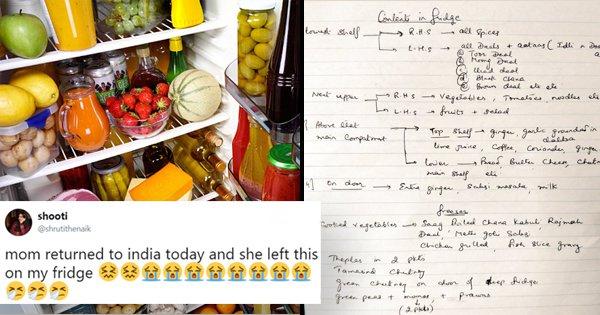 shooti
@shrutithenaik
mom returned to india today and she left this
on my fridge 😖😖😭😭😭😭😭😭😭😭
🤧🤧🤧
Contents in fridge
Lowest shelf → R.H.S → all spices
→ L.H.S → all Daals + aatans (Idli n Dosa
Toor Daal
Mung Daal
Urad daal
Black Chana
Brown daal etc etc
Next upper → R.H.S → Vegetables, Tomatoes, noodles etc
→ L.H.S → fruits + salad
Above that → Top shelf → ginger, garlic grounded in
main Compartment
lime juice, Coffee, Coriander, ginger
→ lower → Bread Butter Cheese,
main shelf etc
4] On door → Entire ginger, Sabzi masala, milk
freezer
Cooked vegetables → Saag Boiled Chana Kabuli, Rajmah
Daal, Methi gobi Sabzi
Chicken grilled, fish slice gravy
Theplas in 2 pkts
Tamarind Chutney
green chutney on door of deep fridge
green peas + momos + prawns
(2 pkts)